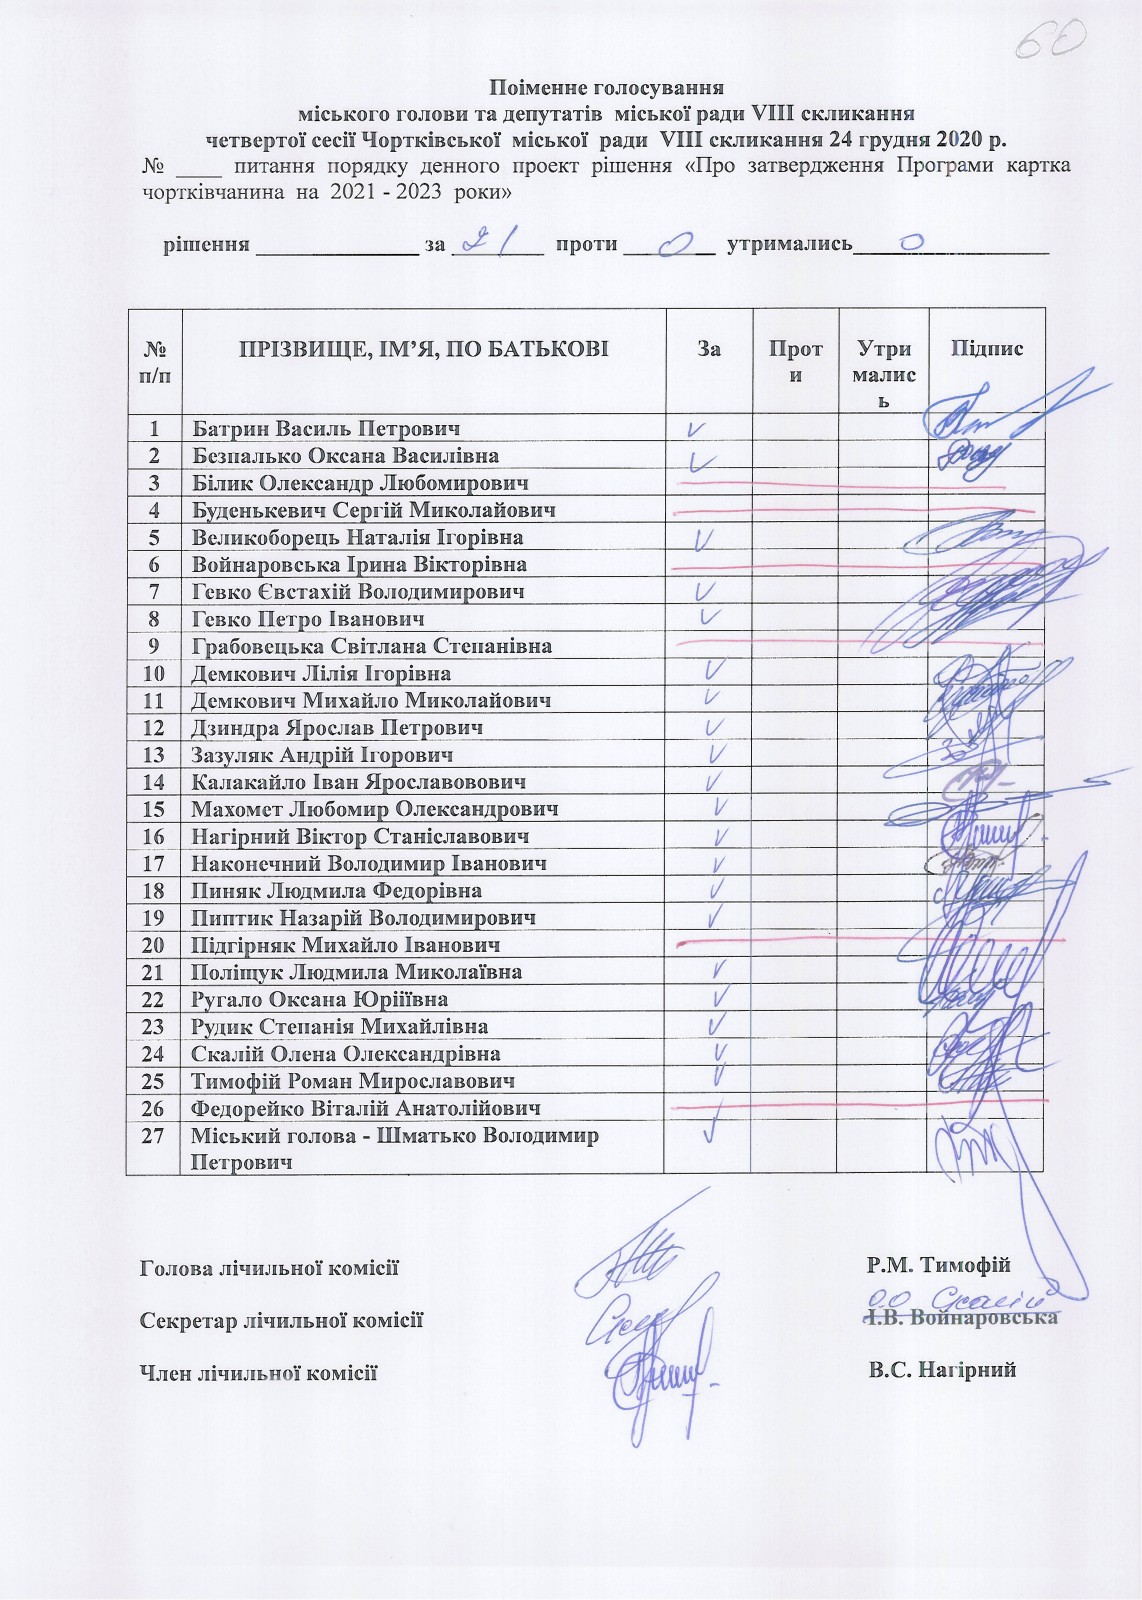 60
Поіменне голосування
міського голови та депутатів міської ради VIII скликання
четвертої сесії Чортківської міської ради VIII скликання 24 грудня 2020 р.
№ ____ питання порядку денного проект рішення «Про затвердження Програми картка
чортківчанина на 2021 - 2023 роки»
рішення ______________ за 21 проти 0 утримались 0
№ п/п ПРІЗВИЩЕ, ІМ’Я, ПО БАТЬКОВІ За Проти Утрималис ь Підпис
1 Батрин Василь Петрович V
2 Безпалько Оксана Василівна V
3 Білик Олександр Любомирович
4 Буденькевич Сергій Миколайович
5 Великоборець Наталія Ігорівна V
6 Войнаровська Ірина Вікторівна
7 Гевко Євстахій Володимирович V
8 Гевко Петро Іванович V
9 Грабовецька Світлана Степанівна
10 Демкович Лілія Ігорівна V
11 Демкович Михайло Миколайович V
12 Дзиндра Ярослав Петрович V
13 Зазуляк Андрій Ігорович V
14 Калакайло Іван Ярославовович V
15 Махомет Любомир Олександрович V
16 Нагірний Віктор Станіславович V
17 Наконечний Володимир Іванович V
18 Пиняк Людмила Федорівна V
19 Пиптик Назарій Володимирович V
20 Підгірняк Михайло Іванович
21 Поліщук Людмила Миколаївна V
22 Ругало Оксана Юріїївна V
23 Рудик Степанія Михайлівна V
24 Скалій Олена Олександрівна V
25 Тимофій Роман Мирославович V
26 Федорейко Віталій Анатолійович
27 Міський голова - Шматько Володимир V
Петрович
Голова лічильної комісії Р.М. Тимофій
О.О Скалій
Секретар лічильної комісії І.В. Войнаровська
Член лічильної комісії В.С. Нагірний